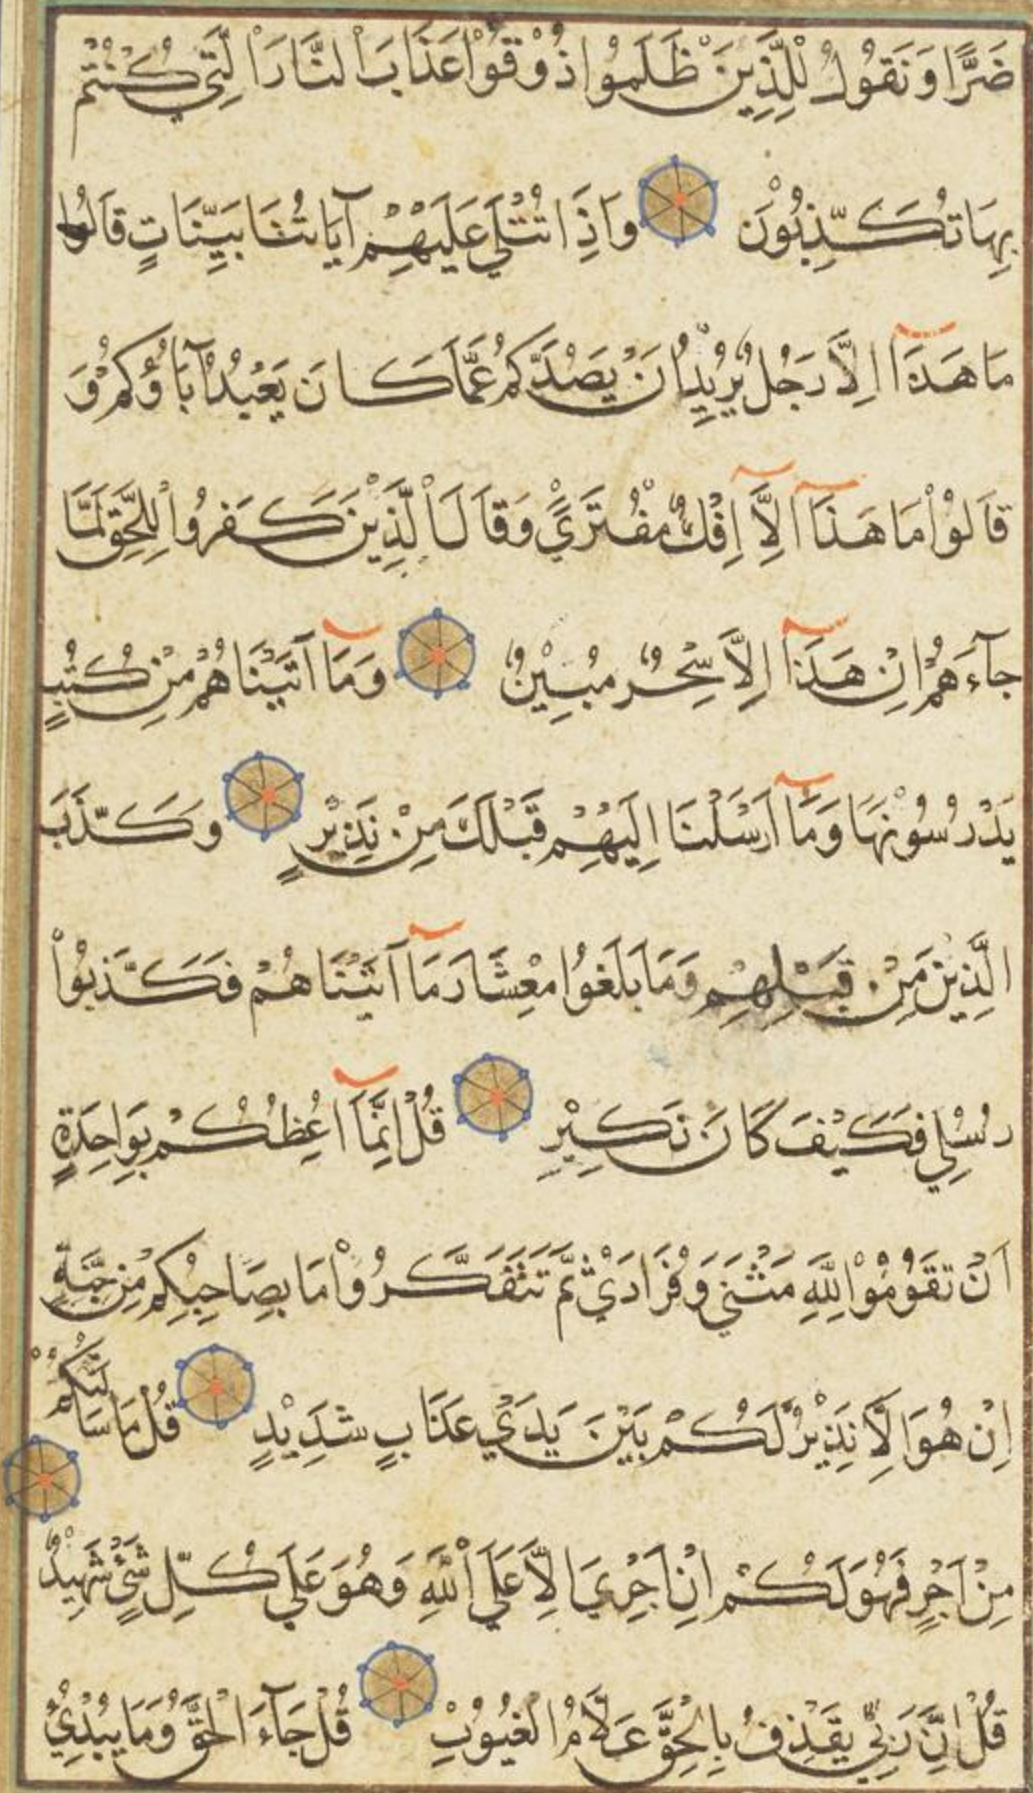 ضَرًّا وَنَقُولُ لِلَّذِينَ ظَلَمُوا ذُوقُوا عَذَابَ النَّارِ الَّتِي كُنْتُمْ
بِهَا تُكَذِّبُونَ وَاِذَا تُتْلَى عَلَيْهِمْ آيَاتُنَا بَيِّنَاتٍ قَالُوا
مَا هَذَآ اِلَّا رَجُلٌ يُرِيدُ اَنْ يَصُدَّكُمْ عَمَّا كَانَ يَعْبُدُ آبَاؤُكُمْ وَ
قَالُوْا مَا هَذَآ اِلَّآ اِفْكٌ مُفْتَرًي وَقَالَ الَّذِيْنَ كَفَرُوا لِلْحَقِّ لَمَّا
جآءَهُمْ اِنْ هَذَآ اِلَّا سِحْرٌ مُبِيْنٌ وَمَآ اَتَيْنَاهُمْ مِنْ كُتُبٍ
يَدْرُسُوْنَهَا وَمَآ اَرْسَلْنَا اِلَيْهِمْ قَبْلَكَ مِنْ نَذِيْرٍ وَكَذَّبَ
الَّذِيْنَ مِنْ قَبْلِهِمْ وَمَا بَلَغُوا مِعْشَارَ مَآ آتَيْنَاهُمْ فَكَذَّبُوْا
رُسُلِي فَكَيْفَ كَانَ نَكِيْرِ قُلْ اِنَّمَآ اَعِظُكُمْ بِوَاحِدَةٍ
اَنْ تَقُوْمُوْا لِلّٰهِ مَثْنَي وَفُرَادَيْ ثُمَّ تَتَفَكَّرُوْا مَا بِصَاحِبِكُمْ مِنْ جِنَّةٍ
اِنْ هُوَ اِلَّا نَذِيْرٌ لَكُمْ بَيْنَ يَدَيْ عَذَابٍ شَدِيْدٍ قُلْ مَا سَاَلْتُكُمْ
مِنْ اَجْرٍ فَهُوَ لَكُمْ اِنْ اَجْرِيَ اِلَّا عَلَي اللّٰهِ وَهُوَ عَلَي كُلِّ شَيْءٍ شَهِيْدٌ
قُلْ اِنَّ رَبِّي يَقْذِفُ بِالْحَقِّ عَلَّامُ الْغُيُوْبِ قُلْ جَآءَ الْحَقُّ وَمَا يُبْدِيُ